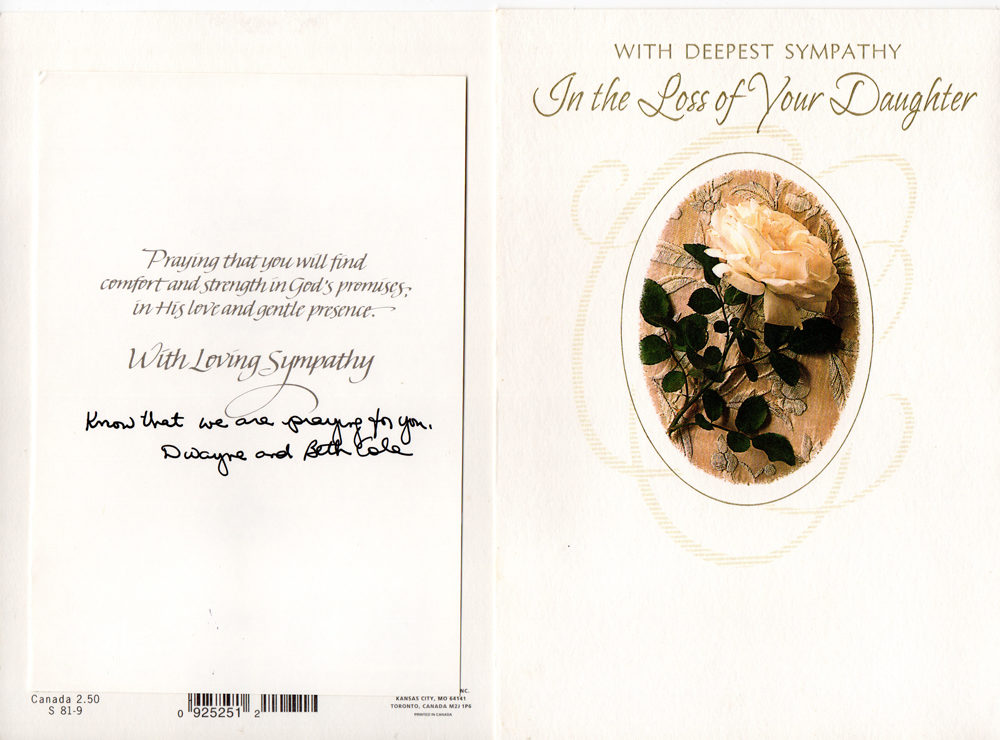 Praying that you will find
comfort and strength in God's promises,
in His love and gentle presence.
With Loving Sympathy
Know that we are praying for you.
Dwayne and Beth Cole
Canada 2.50
S 81-9
0 925251 2
NC.
KANSAS CITY, MO 64141
TORONTO, CANADA M2J 1P6
PRINTED IN CANADA
WITH DEEPEST SYMPATHY
In the Loss of Your Daughter